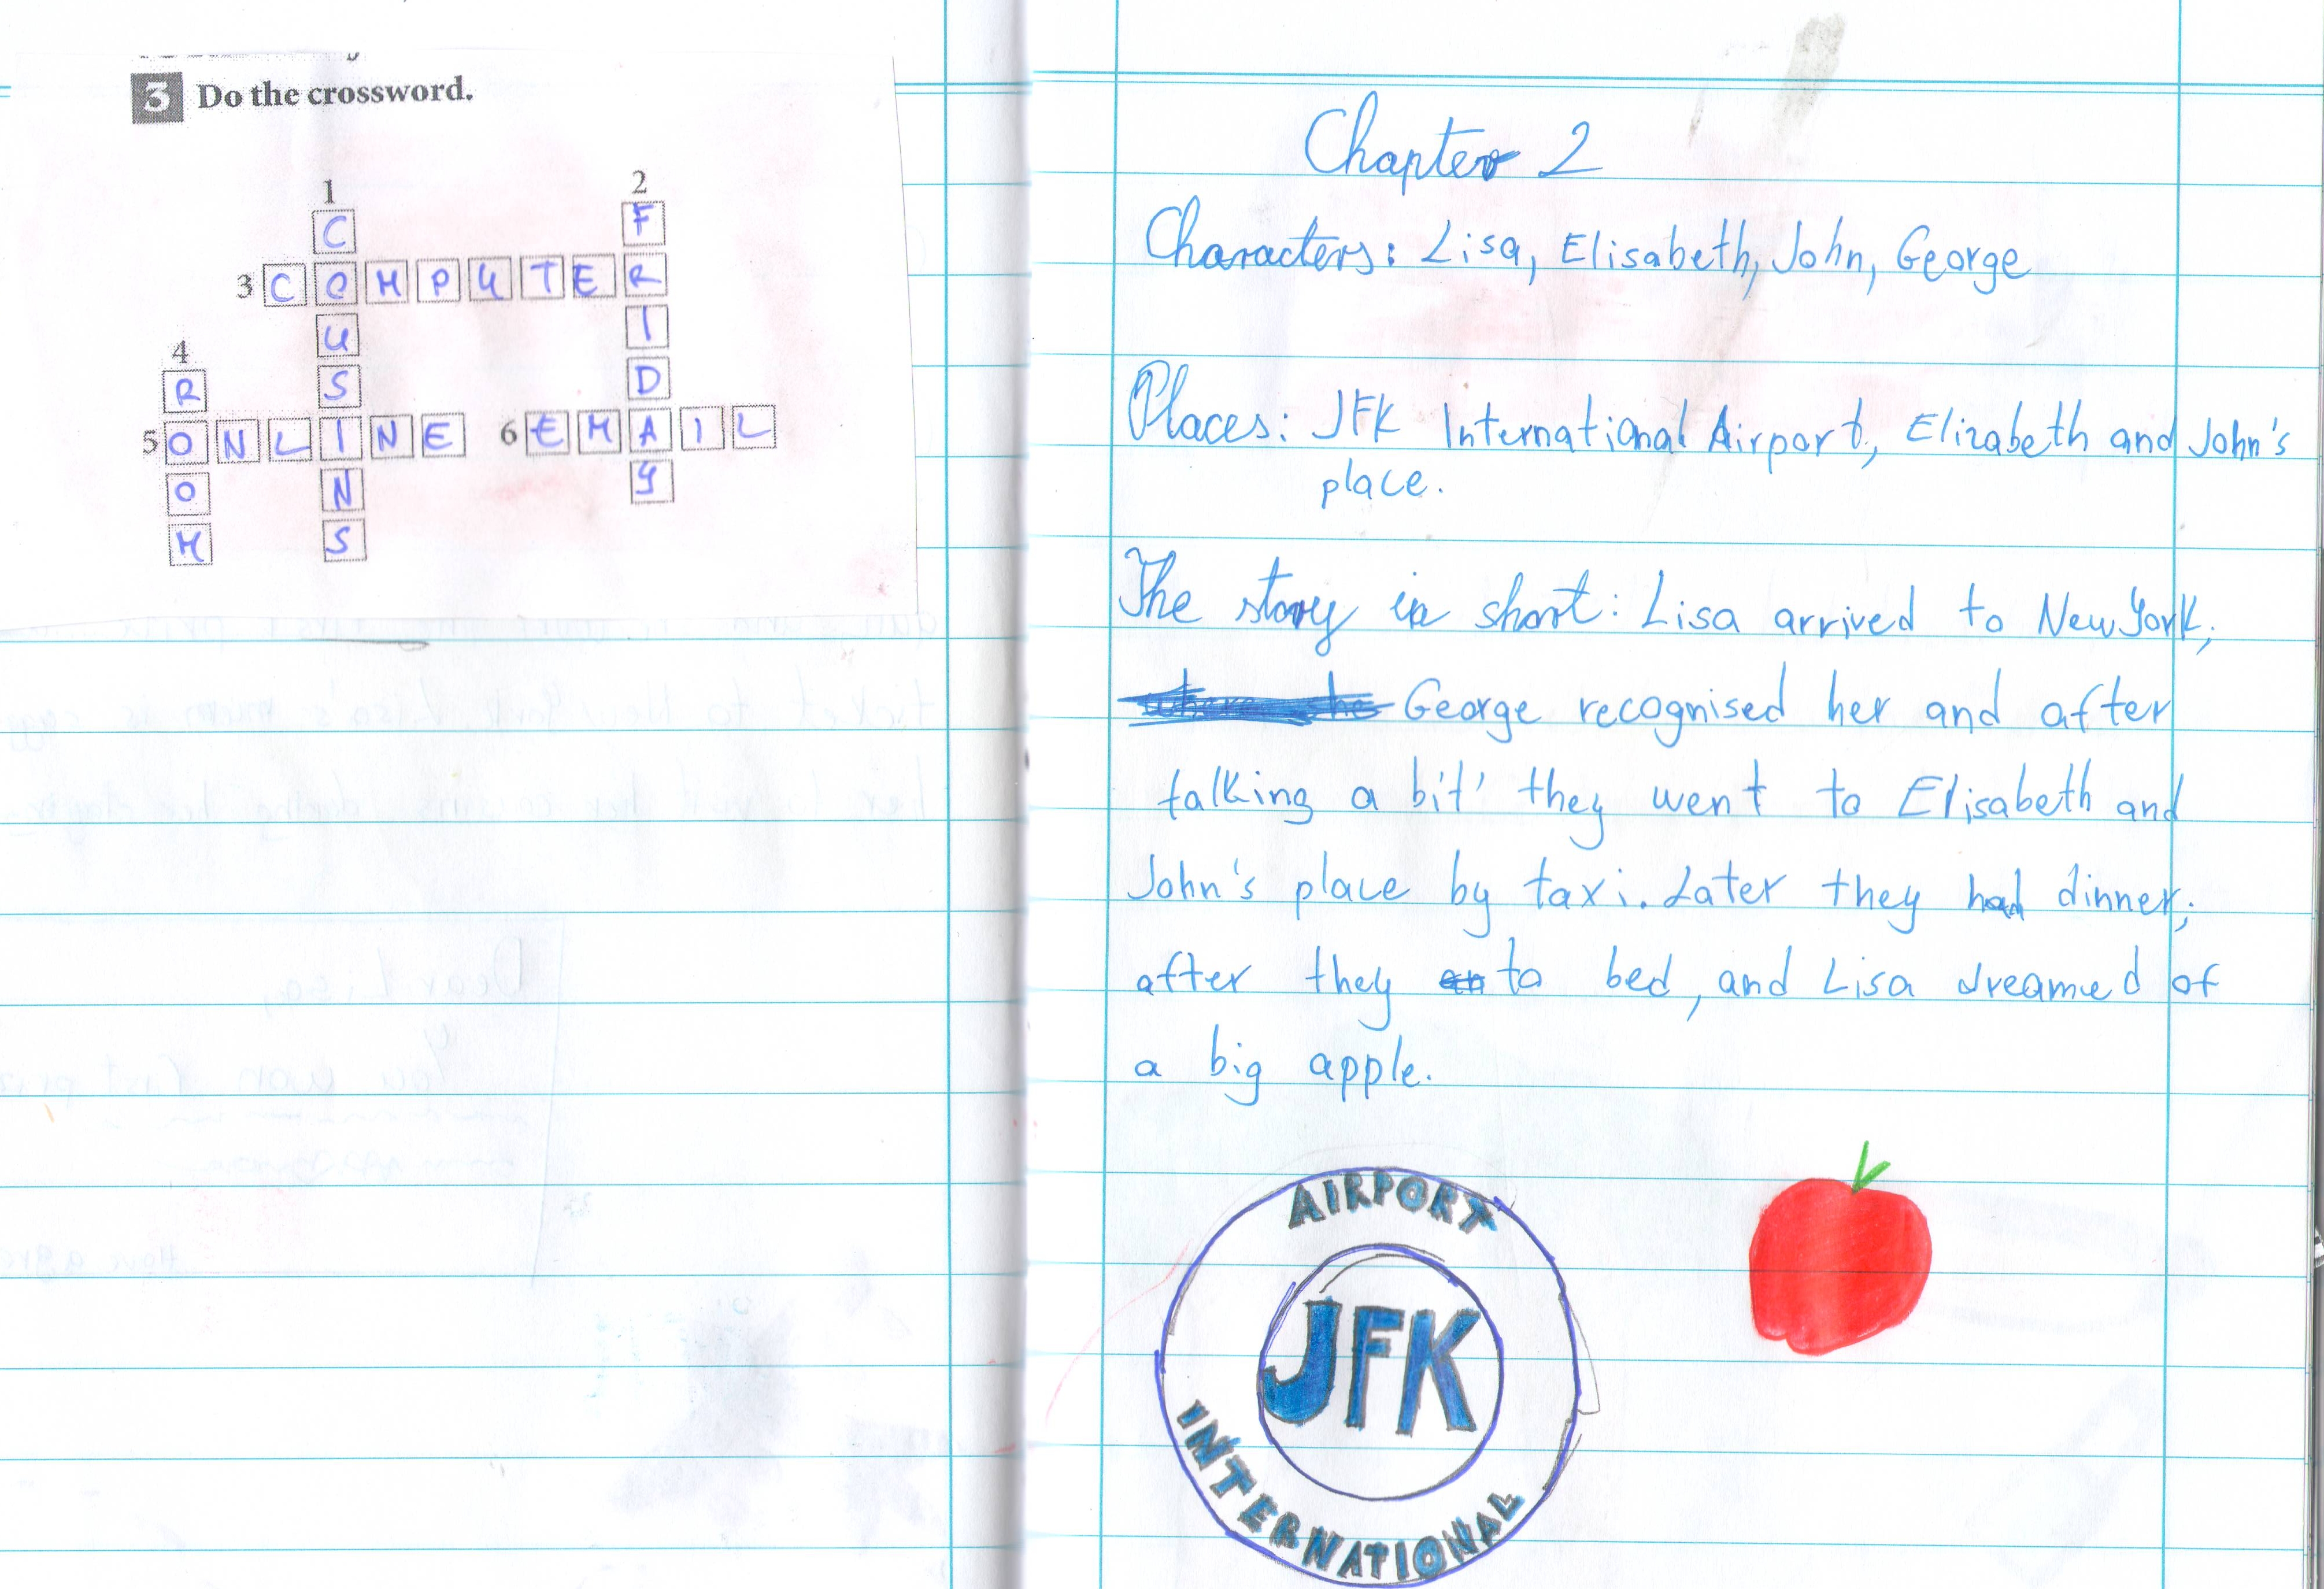 3 Do the crossword.
1 2
C F
3 C O M P U T E R
U I
4 S D
R
5 O N L I N E 6 E M A I L
O N Y
M S
Chapter 2
Characters: Lisa, Elisabeth, John, George
Places: JFK International Airport, Elizabeth and John's
place.
The story in short: Lisa arrived to New York,
George recognised her and after
talking a bit' they went to Elisabeth and
John's place by taxi. Later they had dinner,
after they to bed, and Lisa dreamed of
a big apple.
AIRPORT
JFK
INTERNATIONAL